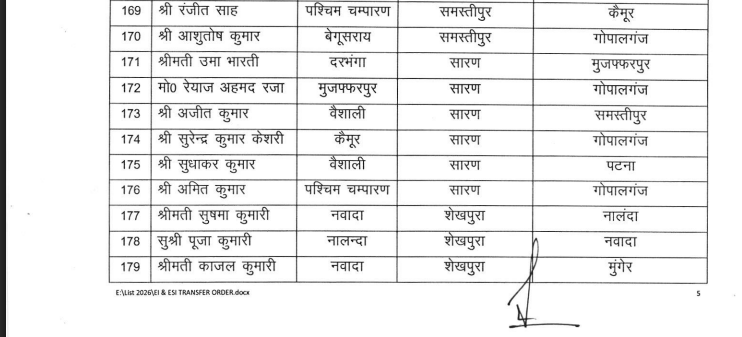 169 श्री रंजीत साह पश्चिम चम्पारण समस्तीपुर कैमूर
170 श्री आशुतोष कुमार बेगूसराय समस्तीपुर गोपालगंज
171 श्रीमती उमा भारती दरभंगा सारण मुजफ्फरपुर
172 मो0 रेयाज अहमद रजा मुजफ्फरपुर सारण गोपालगंज
173 श्री अजीत कुमार वैशाली सारण समस्तीपुर
174 श्री सुरेन्द्र कुमार केशरी कैमूर सारण गोपालगंज
175 श्री सुधाकर कुमार वैशाली सारण पटना
176 श्री अमित कुमार पश्चिम चम्पारण सारण गोपालगंज
177 श्रीमती सुषमा कुमारी नवादा शेखपुरा नालंदा
178 सुश्री पूजा कुमारी नालन्दा शेखपुरा नवादा
179 श्रीमती काजल कुमारी नवादा शेखपुरा मुंगेर
E:\List 2026\EI & ESI TRANSFER ORDER.docx 5